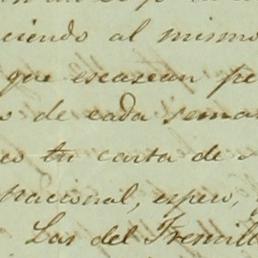 ciendo al mismo
que escasean pe
o de cada sema
eo tu carta de
tracional, espero,
Las del Tremill